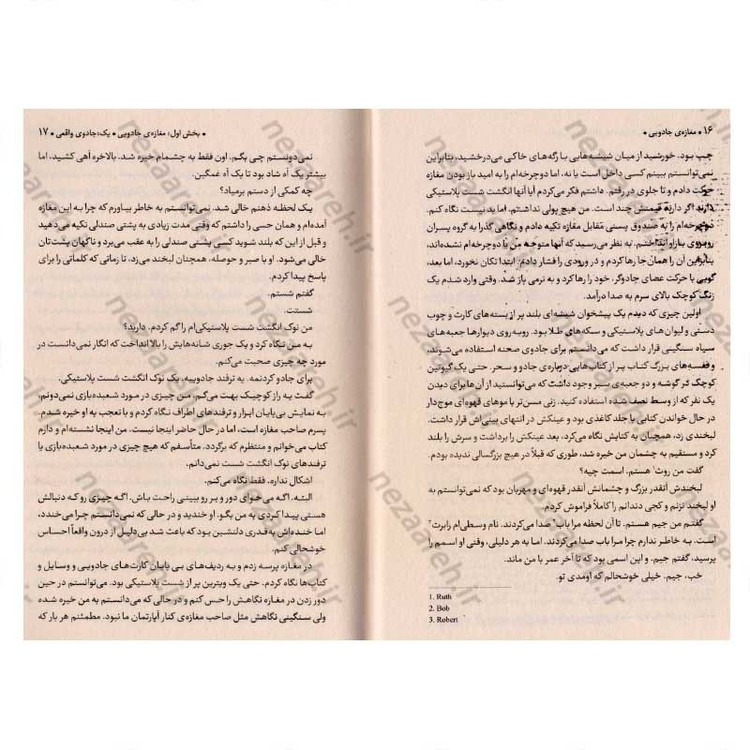 ۱۶ • مغازه‌ی جادویی •
چپ بود. خورشید از میان شیشه‌هایی با رگه‌های خاکی می‌درخشید، بنابراین
نمی‌توانستم ببینم کسی داخل است یا نه. اما دوچرخه‌ام را به امید باز بودن مغازه
حرکت دادم و تا جلوی در رفتم. داشتم فکر می‌کردم آیا آنها انگشت شست پلاستیکی
دارند، اگر دارند قیمتش چند است. من هیچ پولی نداشتم، اما بد نیست نگاه کنم.
دوچرخه‌ام را به صندوق پستی مقابل مغازه تکیه دادم و نگاهی گذرا به گروه پسران
روبروی بار انداختم. به نظر می‌رسید که آنها متوجه من یا دوچرخه‌ام نشده‌اند،
بنابراین آن را همان جا رها کردم و در ورودی را فشار دادم. ابتدا تکان نخورد، اما بعد،
گویی با حرکت عصای جادوگر، خود را رها کرد و به نرمی باز شد. وقتی وارد شدم یک
زنگ کوچک بالای سرم به صدا درآمد.
اولین چیزی که دیدم یک پیشخوان شیشه‌ای بلند پر از بسته‌های کارت و چوب
دستی و لیوان‌های پلاستیکی و سکه‌های طلا بود. روبه‌روی دیوارها جعبه‌های
سیاه سنگینی قرار داشت که می‌دانستم برای جادوی صحنه استفاده می‌شوند،
و قفسه‌های بزرگ کتاب پر از کتاب‌هایی درباره‌ی جادو و سحر. حتی یک گیوتین
کوچک در گوشه و دو جعبه‌ی سبز وجود داشت که می‌توانستید از آن‌ها برای دیدن
یک نفر که از وسط نصف شده استفاده کنید. زنی مسن‌تر با موهای قهوه‌ای موج‌دار
در حال خواندن کتابی با جلد کاغذی بود و عینکش در انتهای بینی‌اش قرار داشت.
لبخندی زد، همچنان به کتابش نگاه می‌کرد، بعد عینکش را برداشت و سرش را بلند
کرد و مستقیم به چشمان من خیره شد، طوری که قبلاً در هیچ بزرگسالی ندیده بودم.
گفت من روت¹ هستم. اسمت چیه؟
لبخندش آنقدر بزرگ و چشمانش آنقدر قهوه‌ای و مهربان بود که نمی‌توانستم به
او لبخند نزنم و کجی دندانم را کاملاً فراموش کردم.
گفتم من جیم هستم. تا آن لحظه مرا باب² صدا می‌کردند. نام وسطی‌ام رابرت³
است. به خاطر ندارم چرا مرا باب صدا می‌کردند. اما به هر دلیلی، وقتی او اسمم را
پرسید، گفتم جیم. و این اسمی بود که تا آخر عمر با من ماند.
خب، جیم. خیلی خوشحالم که اومدی تو.
1. Ruth
2. Bob
3. Robert
• بخش اول: مغازه‌ی جادویی • یک: جادوی واقعی • ۱۷
نمی‌دونستم چی بگم. اون فقط به چشمام خیره شد. بالاخره آهی کشید، اما
بیشتر یک آه شاد بود تا یک آه غمگین.
چه کمکی از دستم برمیاد؟
یک لحظه ذهنم خالی شد. نمی‌توانستم به خاطر بیاورم که چرا به این مغازه
آمده‌ام و همان حسی را داشتم که وقتی مدت زیادی به پشتی صندلی تکیه می‌دهید
و قبل از این که بلند شوید کسی پشتی صندلی را به عقب می‌برد و ناگهان پشت‌تان
خالی می‌شود. او با صبر و حوصله، همچنان لبخند می‌زد، تا زمانی که کلماتی را برای
پاسخ پیدا کردم.
گفتم شستم.
شستت.
من نوک انگشت شست پلاستیکی‌ام را گم کردم. دارید؟
به من نگاه کرد و یک جوری شانه‌هایش را بالا انداخت که انگار نمی‌دانست در
مورد چه چیزی صحبت می‌کنم.
برای جادو کردنمه. یه ترفند جادوییه. یک نوک انگشت شست پلاستیکی.
گفت یه راز کوچیک بهت می‌گم. من چیزی در مورد شعبده‌بازی نمی‌دونم.
به نمایش بی‌پایان ابزار و ترفندهای اطراف نگاه کردم و با تعجب به او خیره شدم.
پسرم صاحب مغازه است، اما در حال حاضر اینجا نیست. من اینجا نشسته‌ام و دارم
کتاب می‌خوانم و منتظرم که برگردد. متأسفم که هیچ چیزی در مورد شعبده‌بازی یا
ترفندهای نوک انگشت شست نمی‌دانم.
اشکال نداره. فقط نگاه می‌کنم.
البته. اگه می‌خوای دور و بر رو ببینی راحت باش. اگه چیزی رو که دنبالش
هستی پیدا کردی به من بگو. او خندید و در حالی که نمی‌دانستم چرا می‌خندد،
اما خنده‌اش به‌قدری دلنشین بود که باعث شد بی‌دلیل از درون واقعاً احساس
خوشحالی کنم.
در مغازه پرسه زدم و به ردیف‌های بی پایان کارت‌های جادویی و وسایل و
کتاب‌ها نگاه کردم. حتی یک ویترین پر از شست پلاستیکی بود. می‌توانستم در حین
دور زدن در مغازه نگاهش را حس کنم و در حالی که می‌دانستم به من خیره شده
ولی سنگینی نگاهش مثل صاحب مغازه‌ی کنار آپارتمان ما نبود. مطمئنم هر بار که
nezaareh.ir